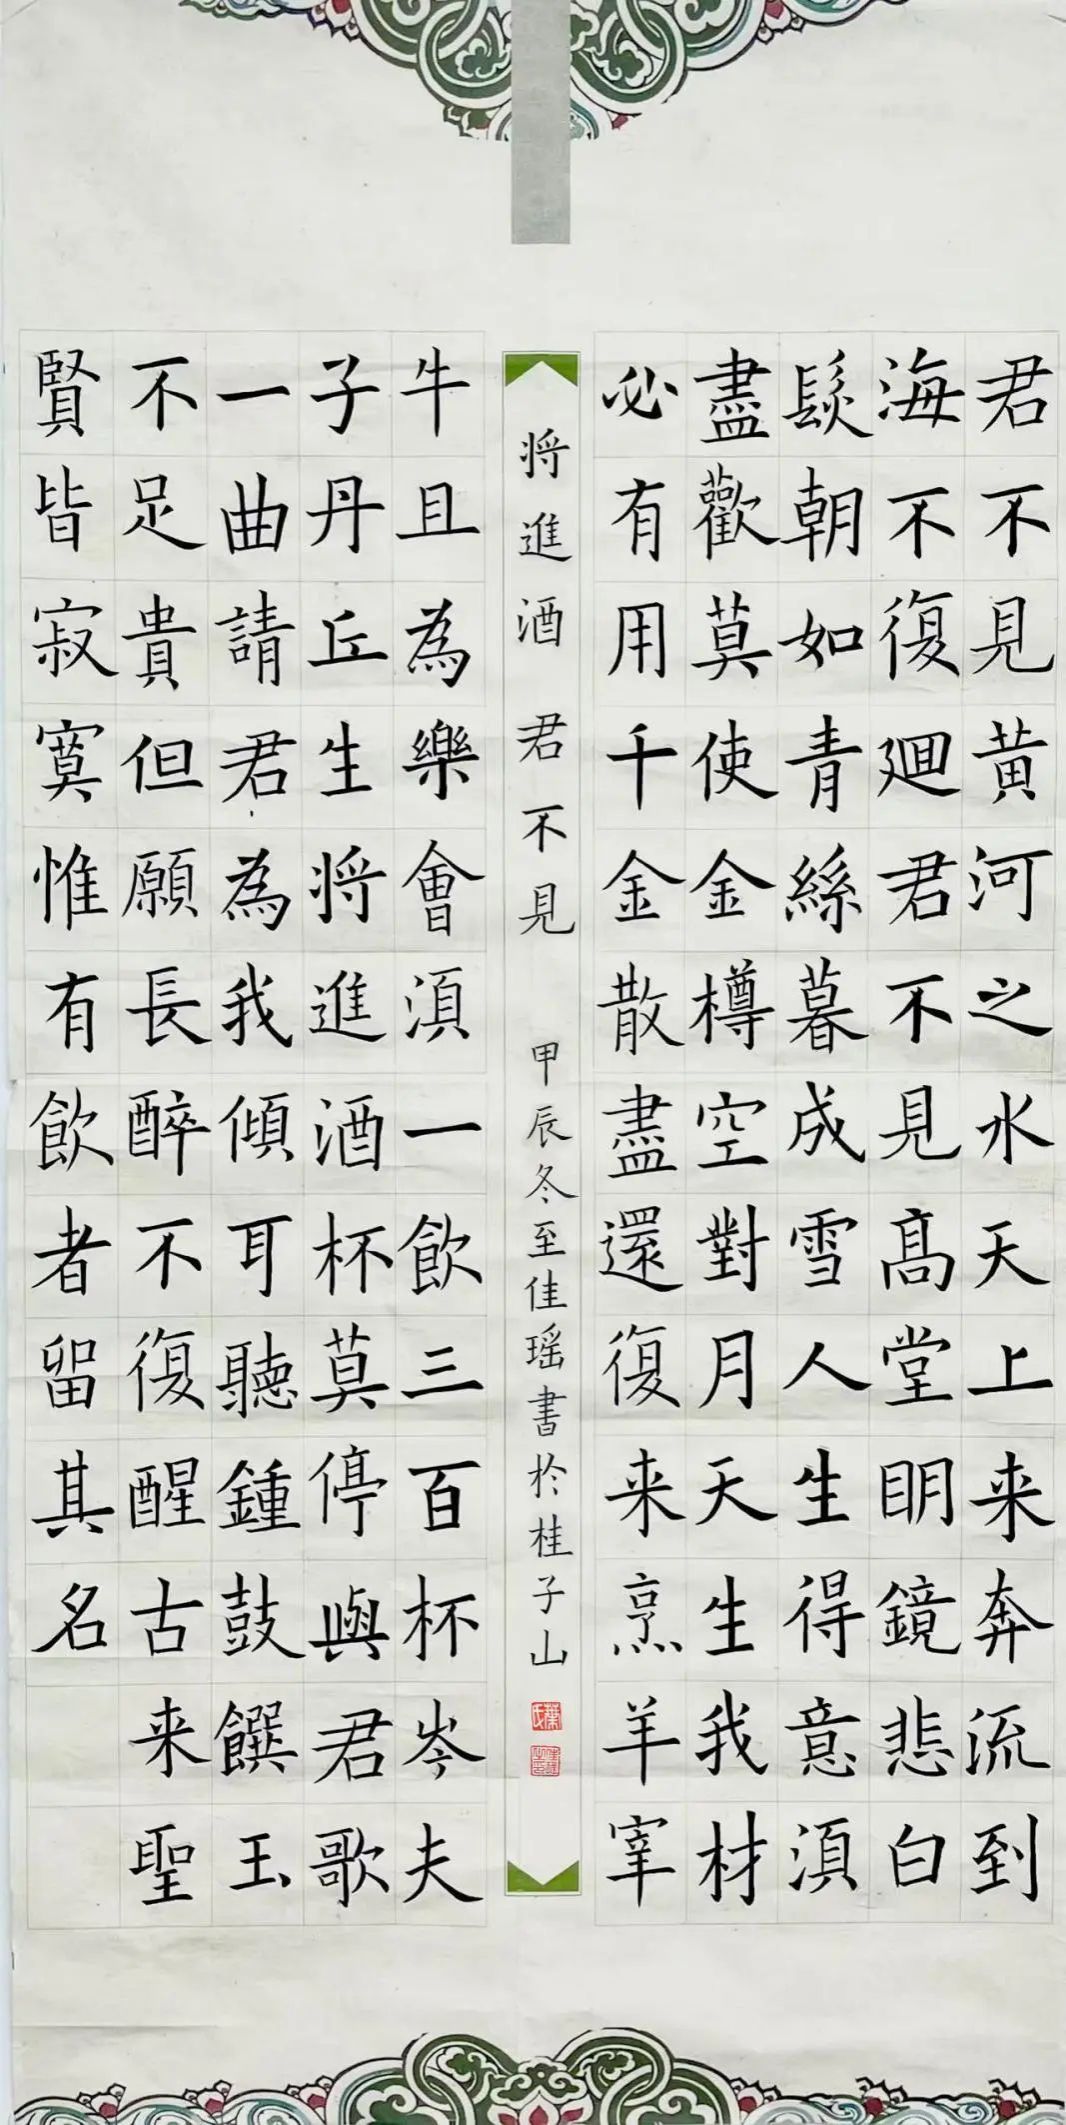 君不見黃河之水天上来奔流到
海不復廻君不見髙堂眀鏡悲白
髮朝如青絲暮成雪人生得意湏
盡歡莫使金樽空對月天生我材
必有用千金散盡還復来烹羊宰
牛且為樂會湏一飲三百杯岑夫
子丹丘生将進酒杯莫停與君歌
一曲請君為我傾耳聽鍾鼓饌玉
不足貴但願長醉不復醒古来聖
賢皆寂寞惟有飲者留其名
将進酒 君不見 甲辰冬至佳瑶書於桂子山